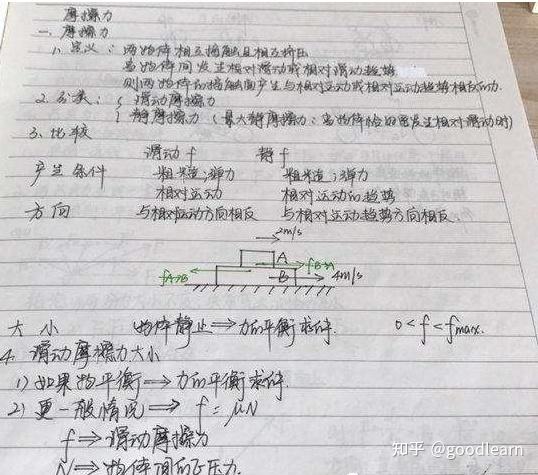 摩擦力
一、摩擦力
1、定义：两物体相互接触且相互挤压
当物体间发生相对滑动或相对滑动趋势
则两物体的接触面产生与相对运动或相对运动趋势相反的力.
2、分类：{ 滑动摩擦力
静摩擦力（最大静摩擦力：当物体恰
发生相对滑动时）
3、比较
滑动f 静f
产生条件 粗糙;弹力 粗糙;弹力
相对运动 相对运动的趋势
方向 与相对运动方向相反 与相对运动趋势方向相反.
2m/s
A
fB→A
fA→B
B
4m/s
大小 物体静止⇒力的平衡求解. 0<f<fmax.
4. 滑动摩擦力大小
1）如果物平衡⇒力的平衡求解.
2）更一般情况⇒ f=μN
f⇒滑动摩擦力
N⇒物体间的正压力.
知乎 @goodlearn